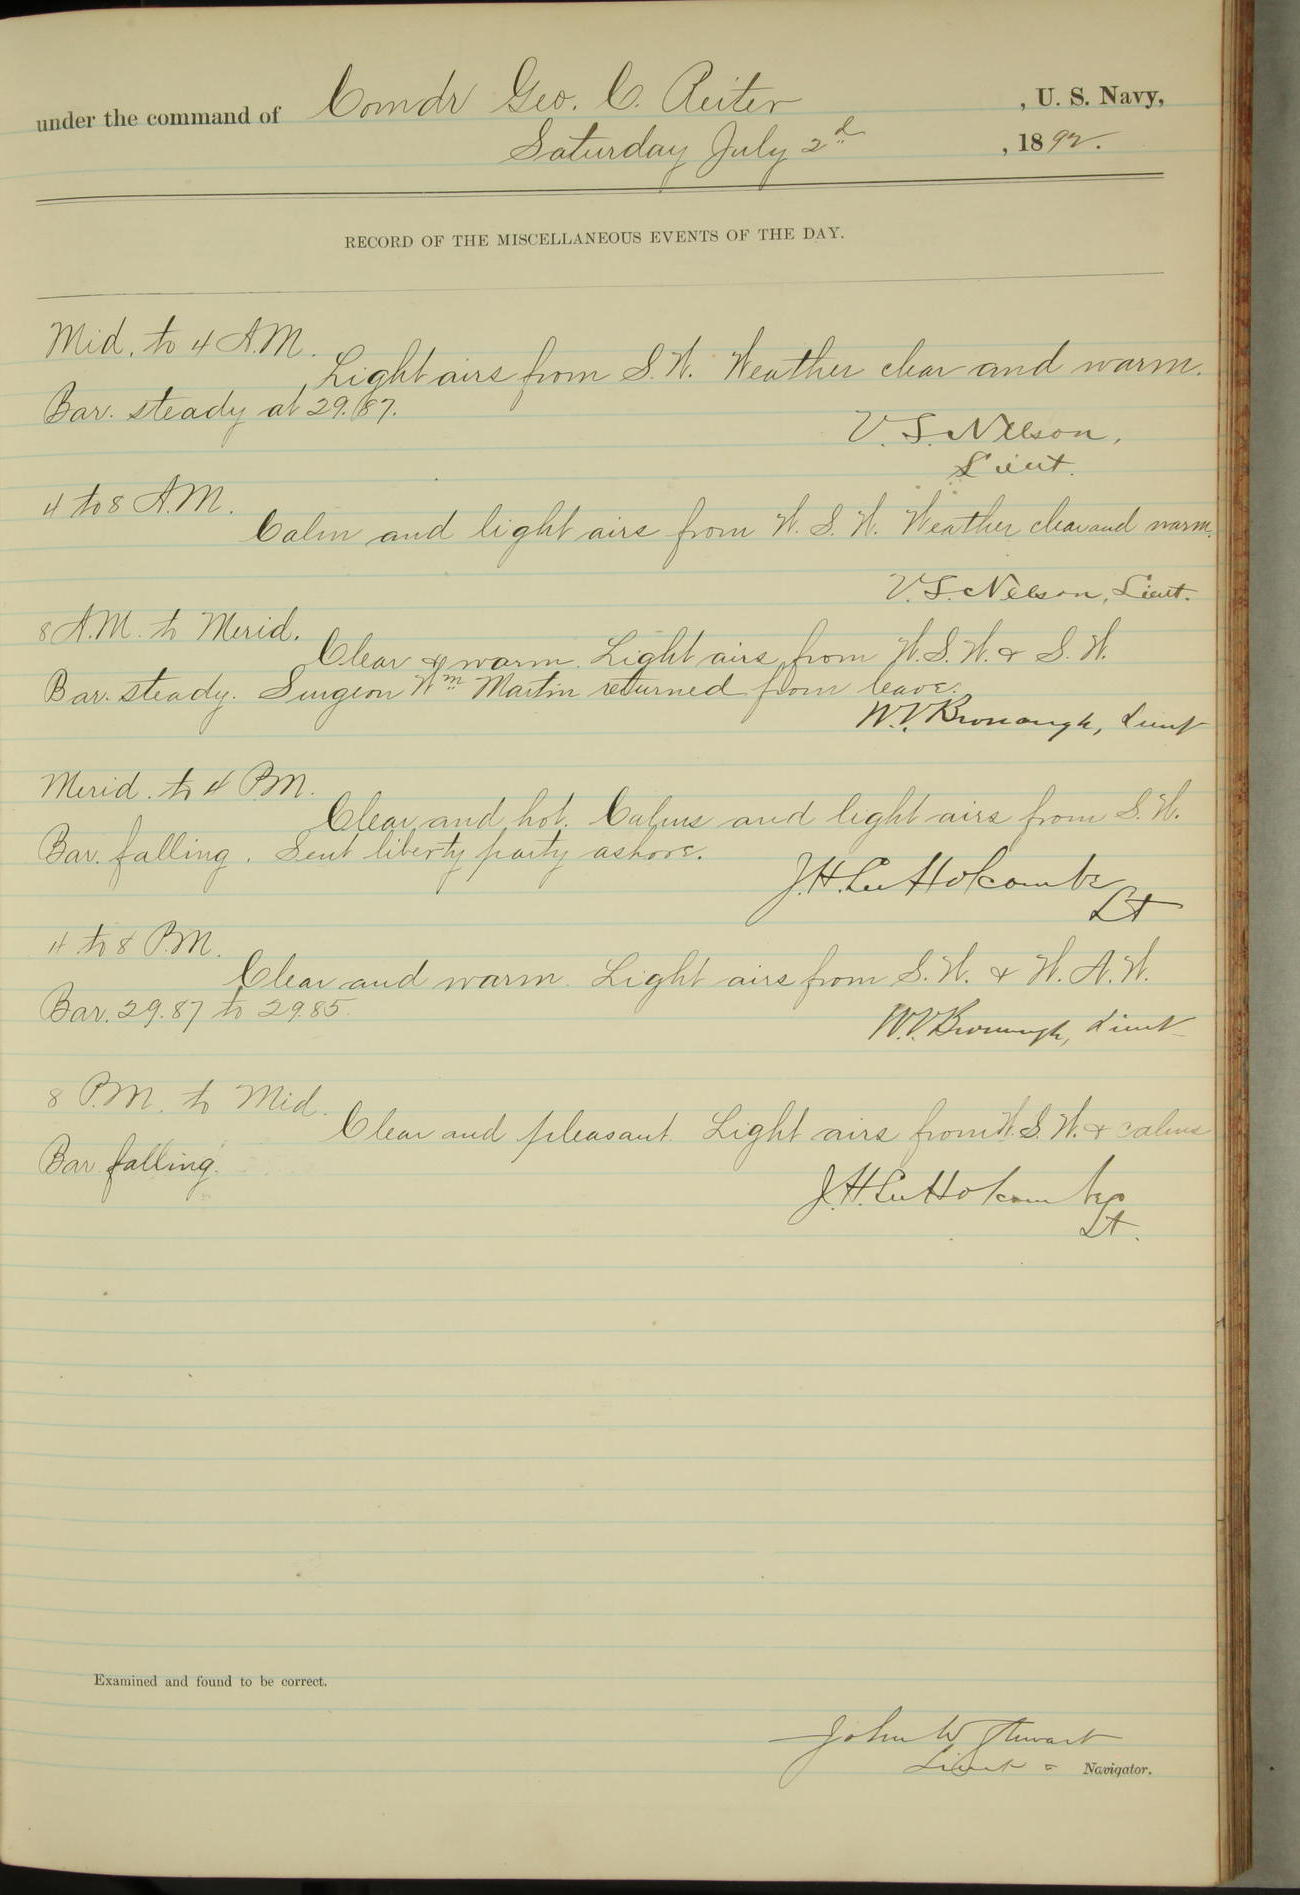 under the command of Comdr Geo. C. Reiter , U. S. Navy,
Saturday July 2d , 1892.
RECORD OF THE MISCELLANEOUS EVENTS OF THE DAY.
Mid. to 4 A.M.
Light airs from S.W. Weather clear and warm.
Bar. steady at 29.87.
V. S. Nelson,
Lieut.
4 to 8 A.M.
Calm and light airs from W. S. W. Weather clear and warm.
V. S. Nelson, Lieut.
8 A.M. to Merid.
Clear & warm. Light airs from W.S.W. & S.W.
Bar. steady. Surgeon Wm Martin returned from leave.
W.V. Bronaugh, Lieut
Merid. to 4 P.M.
Clear and hot. Calms and light airs from S.W.
Bar. falling. Sent liberty party ashore.
J.H. Lee Holcombe
Lt
4 to 8 P.M.
Clear and warm. Light airs from S.W. & W.N.W.
Bar. 29.87 to 29.85.
W.V. Bronaugh, Lieut
8 P.M. to Mid.
Clear and pleasant. Light airs from W.S.W. & calms
Bar falling.
J.H. Lee Holcombe
Lt.
Examined and found to be correct.
John W Stewart
Lieut & Navigator.